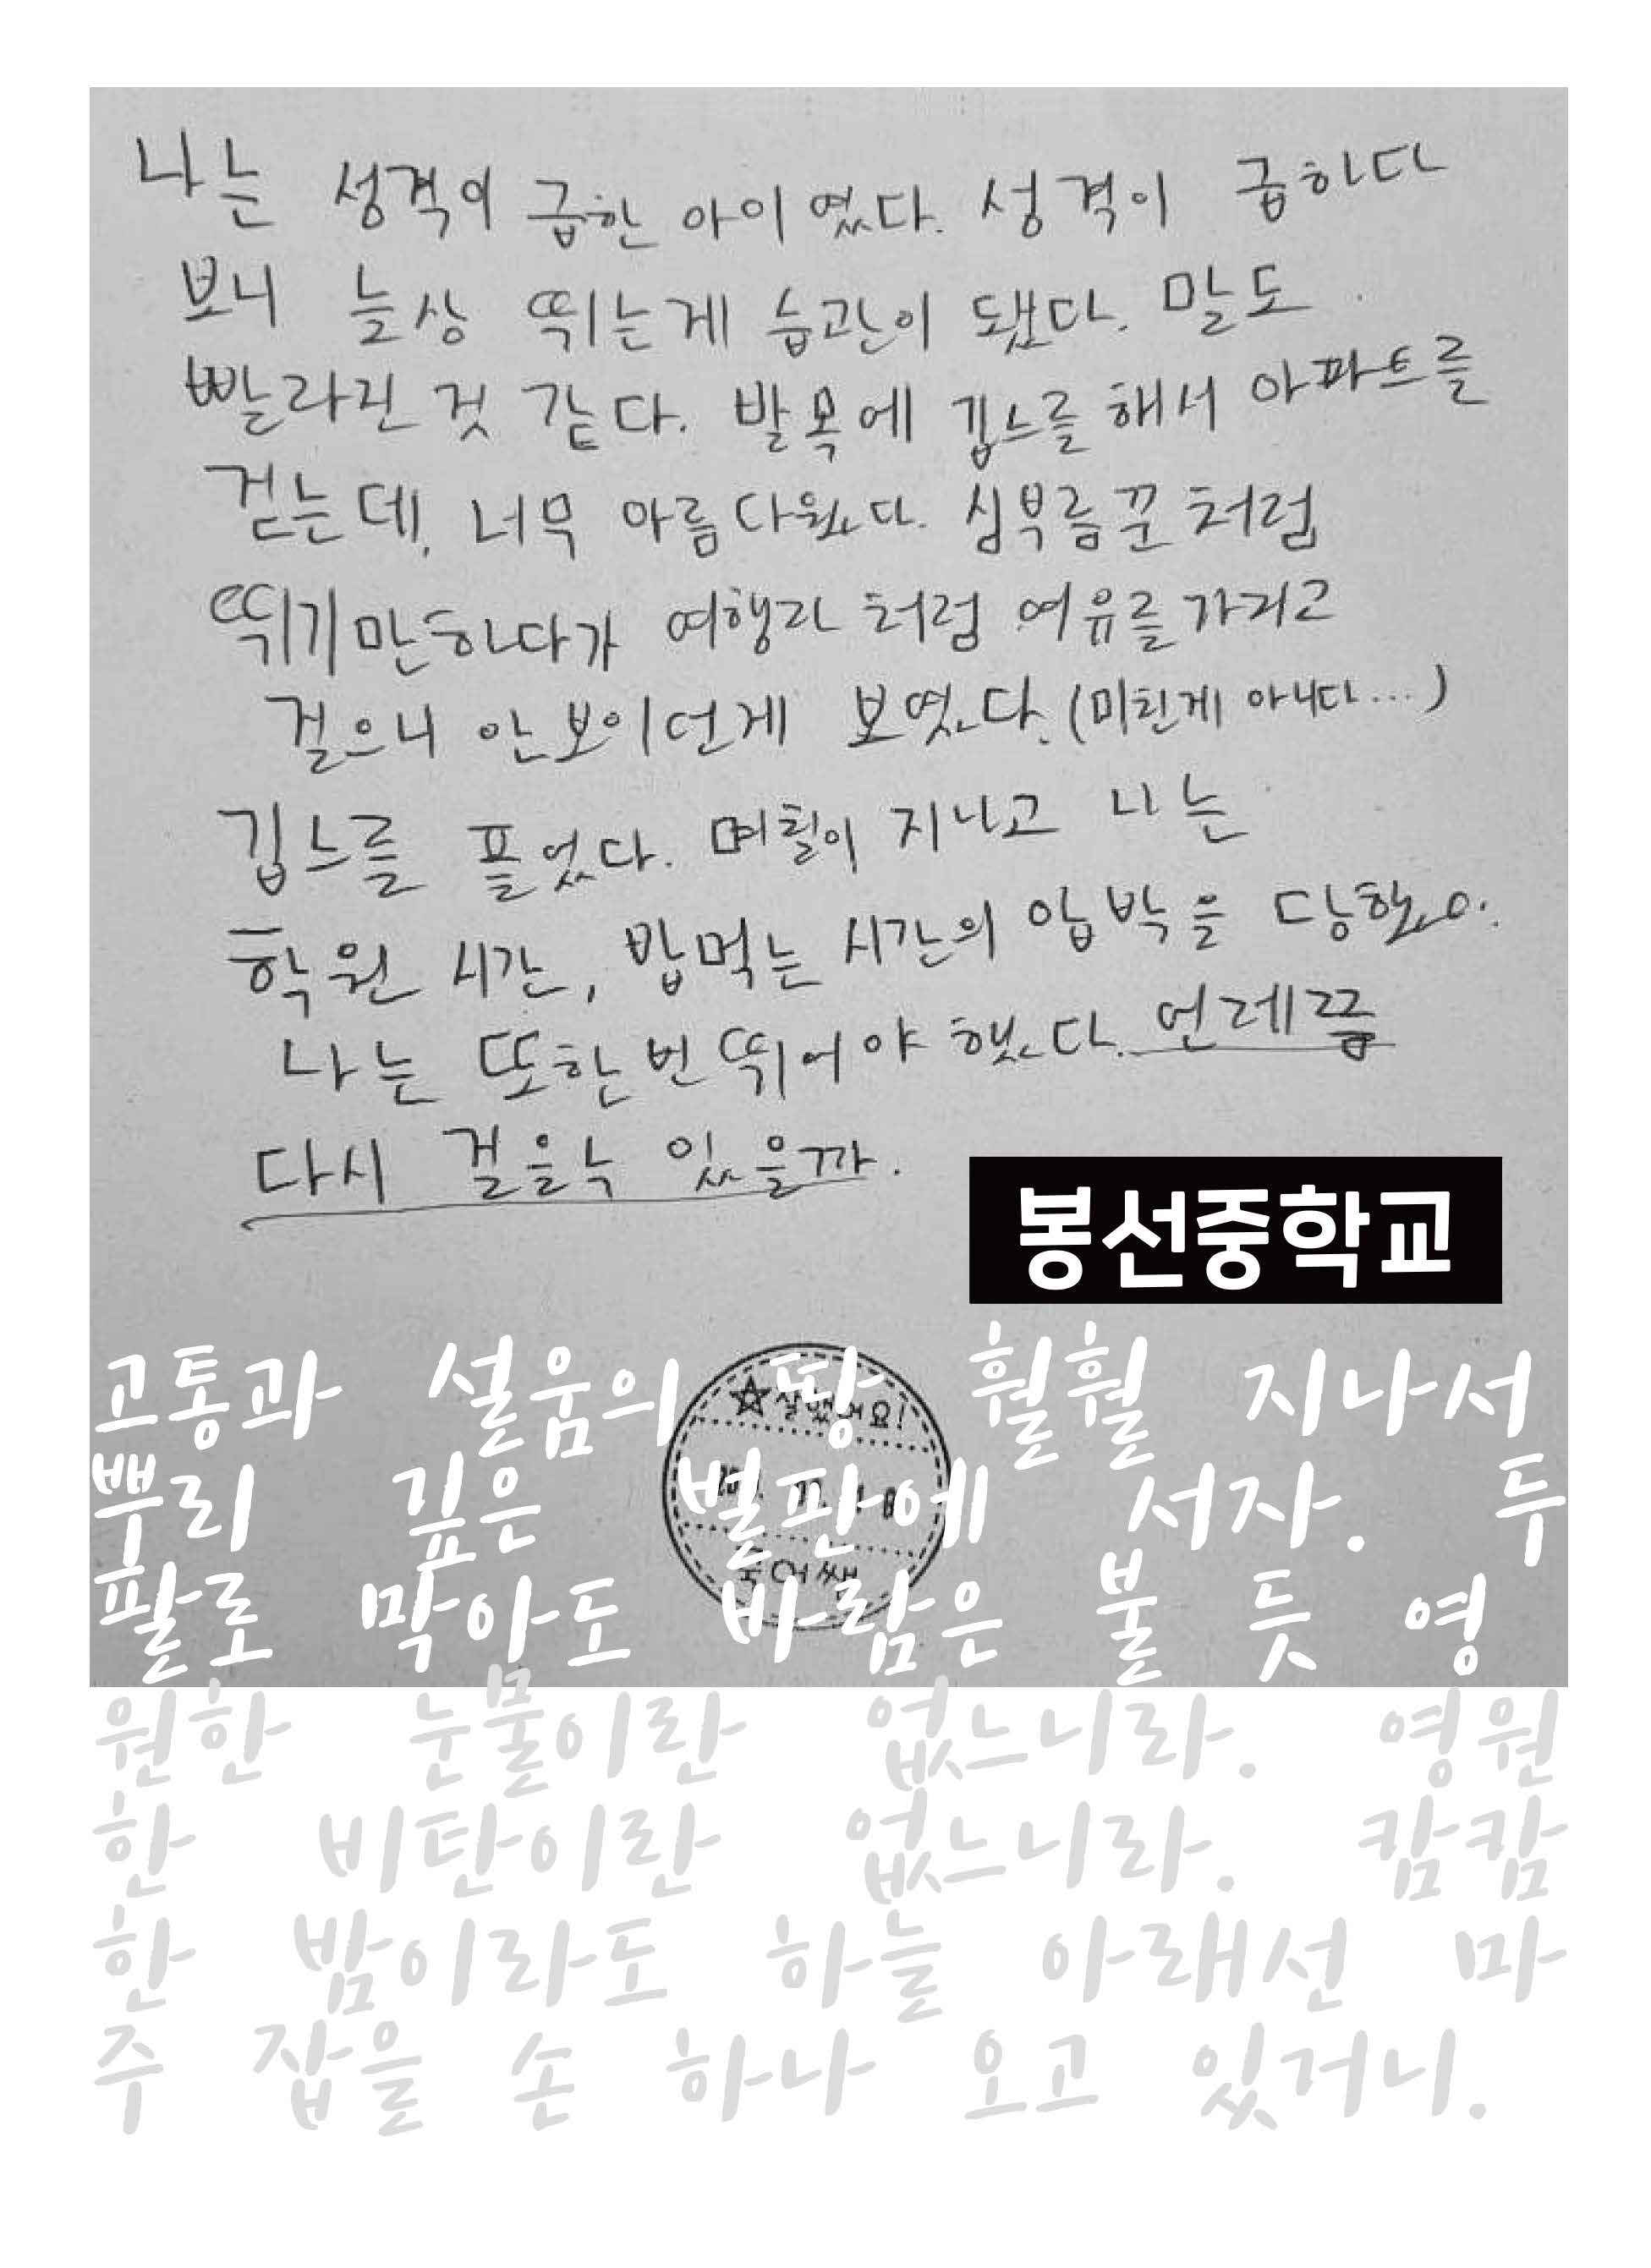 나는 성격이 급한 아이 였다. 성격이 급하다
보니 늘상 뛰는게 습관이 됐다. 말도
빨라진 것 같다. 발목에 깁스를 해서 아파트를
걷는데, 너무 아름다웠다. 심부름꾼처럼
뛰기만하다가 여행객처럼 여유를가지고
걸으니 안보이던게 보였다. (미친게 아니다...)
깁스를 풀었다. 며칠이 지나고 나는
학원 시간, 밥먹는 시간의 압박을 당했다.
나는 또한번 뛰어야 했다. 언제쯤
다시 걸을수 있을까.
봉선중학교
고통과 설움의 땅 훨훨 지나서
뿌리 깊은 벌판에 서자. 두
팔로 막아도 바람은 불 듯 영
원한 눈물이란 없느니라. 영원
한 비탄이란 없느니라. 캄캄
한 밤이라도 하늘 아래선 마
주 잡을 손 하나 오고 있거니.
☆잘했어요!
국어쌤